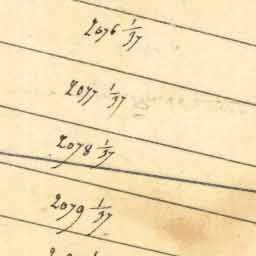 2076 1/37
2077 1/37
2078 1/37
2079 1/37